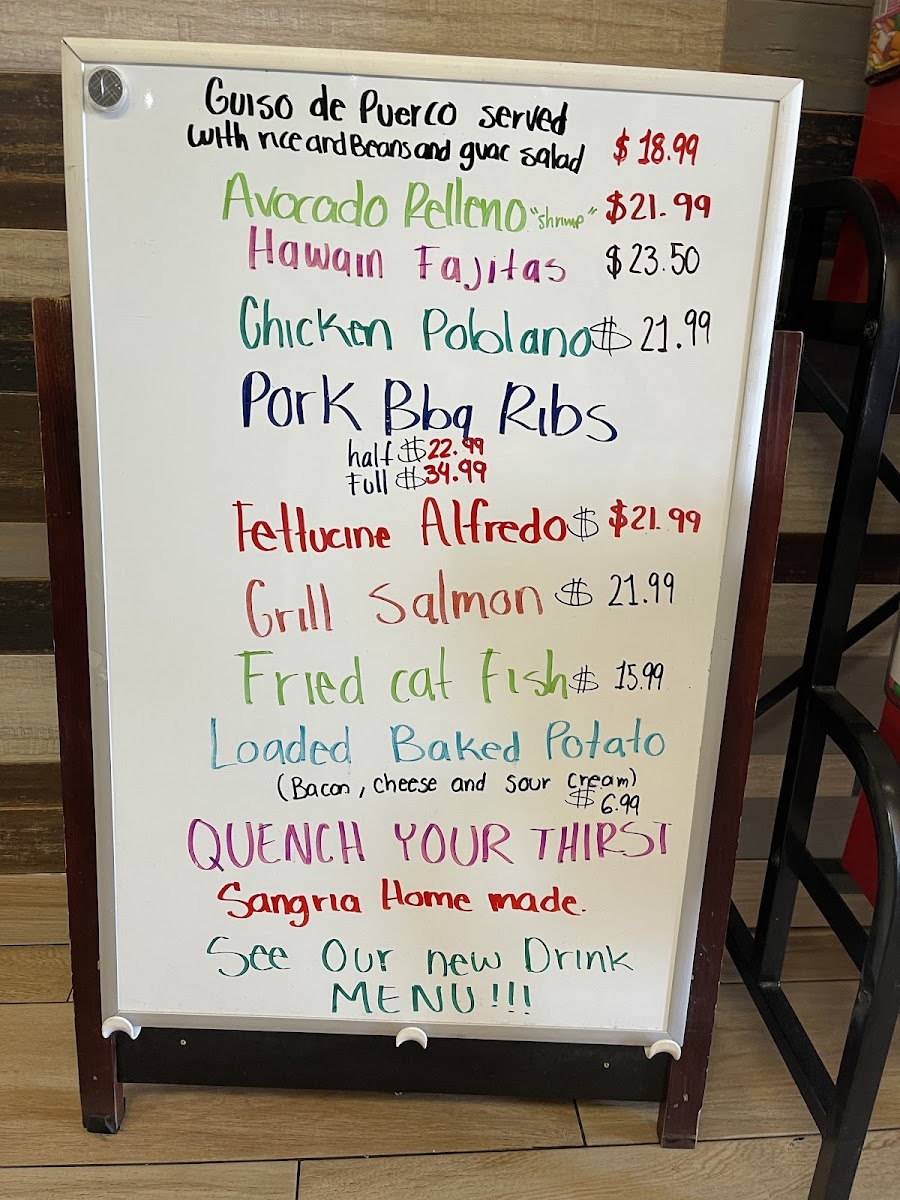 Guiso de Puerco served
with rice and Beans and guac salad $18.99
Avocado Relleno "shrimp" $21.99
Hawain Fajitas $23.50
Chicken Poblano $21.99
Pork Bbq Ribs
half $22.99
Full $34.99
Fettucine Alfredo $ $21.99
Grill Salmon $21.99
Fried cat Fish $15.99
Loaded Baked Potato
(Bacon, cheese and sour cream)
$6.99
QUENCH YOUR THIRST
Sangria Home made.
See Our new Drink
MENU!!!